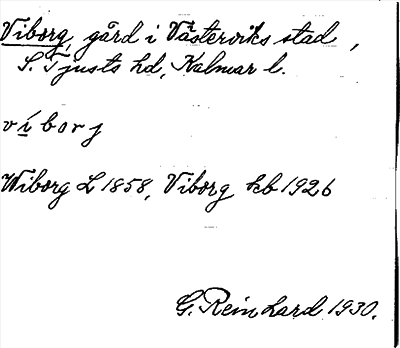 Viborg, gård i Västerviks stad,
S. Tjusts hd, Kalmar l.
víborj
Wiborg L 1858, Viborg kb 1926
G. Reinhard 1930.